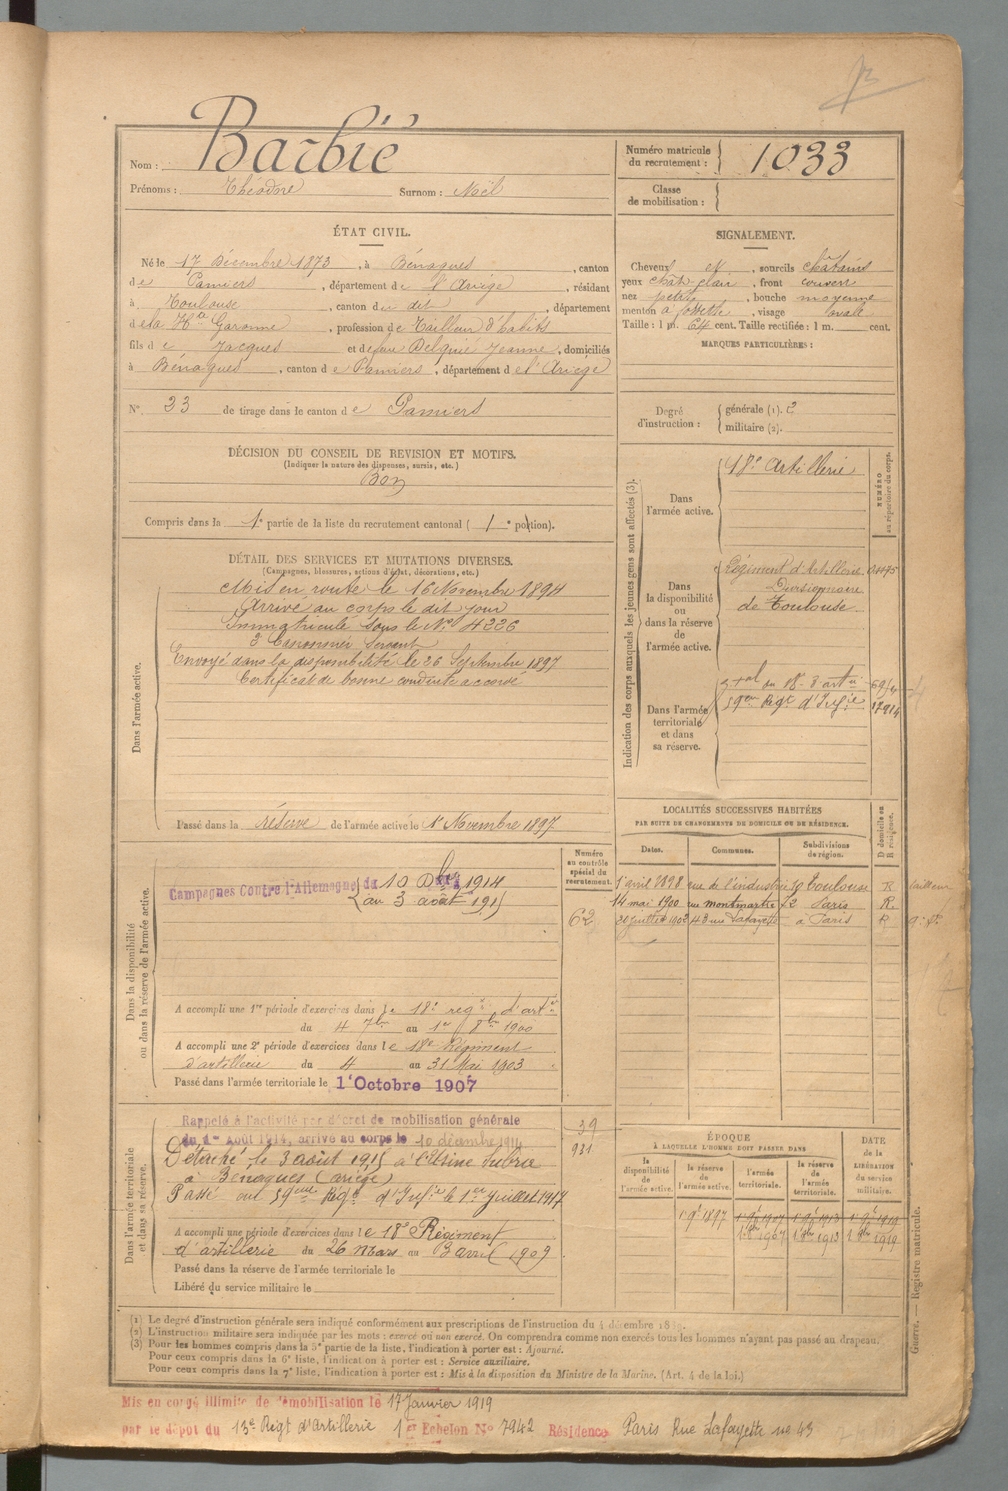 Barbié
Nom :
Prénoms : Théodore Surnom : Noël
Numéro matricule
du recrutement : 1033
Classe
de mobilisation :
ÉTAT CIVIL.
Né le 17 Décembre 1873, à Bénagues, canton
de Pamiers, département de l'Ariège, résidant
à Toulouse, canton du dit, département
de la Hte Garonne, profession de Tailleur d'habits
fils de Jacques et de feue Delquié Jeanne, domiciliés
à Bénagues, canton de Pamiers, département de l'Ariège
N° 33 de tirage dans le canton de Pamiers
DÉCISION DU CONSEIL DE REVISION ET MOTIFS.
(Indiquer la nature des dispenses, sursis, etc.)
Bon
Compris dans la 1e partie de la liste du recrutement cantonal ( 1e portion).
SIGNALEMENT.
Cheveux et, sourcils châtains
yeux chât. clair, front couvert
nez petit, bouche moyenne
menton à fossette, visage ovale
Taille : 1 m. 64 cent. Taille rectifiée : 1 m. cent.
MARQUES PARTICULIÈRES :
Degré
d'instruction :
générale (1). 2
militaire (2).
DÉTAIL DES SERVICES ET MUTATIONS DIVERSES.
(Campagnes, blessures, actions d'éclat, décorations, etc.)
Dans l'armée active.
Mis en route le 16 Novembre 1894
Arrivé au corps le dit jour
Immatriculé sous le N° 4226
2e Canonnier Servant
Envoyé dans la disponibilité le 26 Septembre 1897
Certificat de bonne conduite accordé
Passé dans la réserve de l'armée active le 1er Novembre 1897
Indication des corps auxquels les jeunes gens sont affectés (3).
NUMÉRO
au répertoire du corps.
Dans
l'armée active.
18e Artillerie
Dans
la disponibilité
ou
dans la réserve
de
l'armée active.
Régiment d'Artillerie
Divisionnaire
de Toulouse
Dans l'armée
territoriale
et dans
sa réserve.
59ème Régt d'Infie
LOCALITÉS SUCCESSIVES HABITÉES
PAR SUITE DE CHANGEMENTS DE DOMICILE OU DE RÉSIDENCE.
Dates. Communes. Subdivisions
de région.
D domicile ou
R résidence.
1er avril 1898 rue de l'industrie 10 Toulouse R tailleur
14 mai 1900 rue montmartre 72 Paris R.
20 juillet 1902 43 rue Lafayette à Paris R
Numéro
au contrôle
spécial du
recrutement.
62
Dans la disponibilité
ou dans la réserve de l'armée active.
Campagnes Contre l'Allemagne du 10 Dbre 1914
au 3 août 1915
A accompli une 1re période d'exercices dans le 18e regt d'artie
du 4 7bre au 1er 8bre 1900
A accompli une 2e période d'exercices dans le 18e Régiment
d'artillerie du 4 au 31 Mai 1903
Passé dans l'armée territoriale le 1er Octobre 1907
Dans l'armée territoriale
et dans sa réserve.
Rappelé à l'activité par décret de mobilisation générale
du 1er Août 1914, arrivé au corps le 10 décembre 1914
Détaché le 3 août 1915 à l'Usine
à Benagues (Ariège)
Passé au 59ème Régt d'Infie le 1er Juillet 1917
A accompli une période d'exercices dans le 18e Régiment
d'artillerie du 26 mars au 3 avril 1909
Passé dans la réserve de l'armée territoriale le
Libéré du service militaire le
39
931
ÉPOQUE
À LAQUELLE L'HOMME DOIT PASSER DANS
la
disponibilité
de
l'armée active.
la réserve
de
l'armée active.
l'armée
territoriale.
la réserve
de
l'armée
territoriale.
DATE
de la
LIBÉRATION
du service
militaire.
1er 9bre 1897 1er 9bre 1907 1er 9bre 1913 1er 9bre 1919
1er 8bre 1907 1er 8bre 1913 1er 8bre 1919
Guerre. — Registre matricule.
(1) Le degré d'instruction générale sera indiqué conformément aux prescriptions de l'instruction du 4 décembre
(2) L'instruction militaire sera indiquée par les mots : exercé ou non exercé. On comprendra comme non exercés tous les hommes n'ayant pas passé au drapeau.
(3) Pour les hommes compris dans la 5e partie de la liste, l'indication à porter est : Ajourné.
Pour ceux compris dans la 6e liste, l'indication à porter est : Service auxiliaire.
Pour ceux compris dans la 7e liste, l'indication à porter est : Mis à la disposition du Ministre de la Marine. (Art. 4 de la loi.)
Mis en congé illimité de démobilisation le 17 Janvier 1919
par le dépôt du 13e Régt d'Artillerie 1er Echelon N° 7942 Résidence Paris Rue Lafayette n° 43